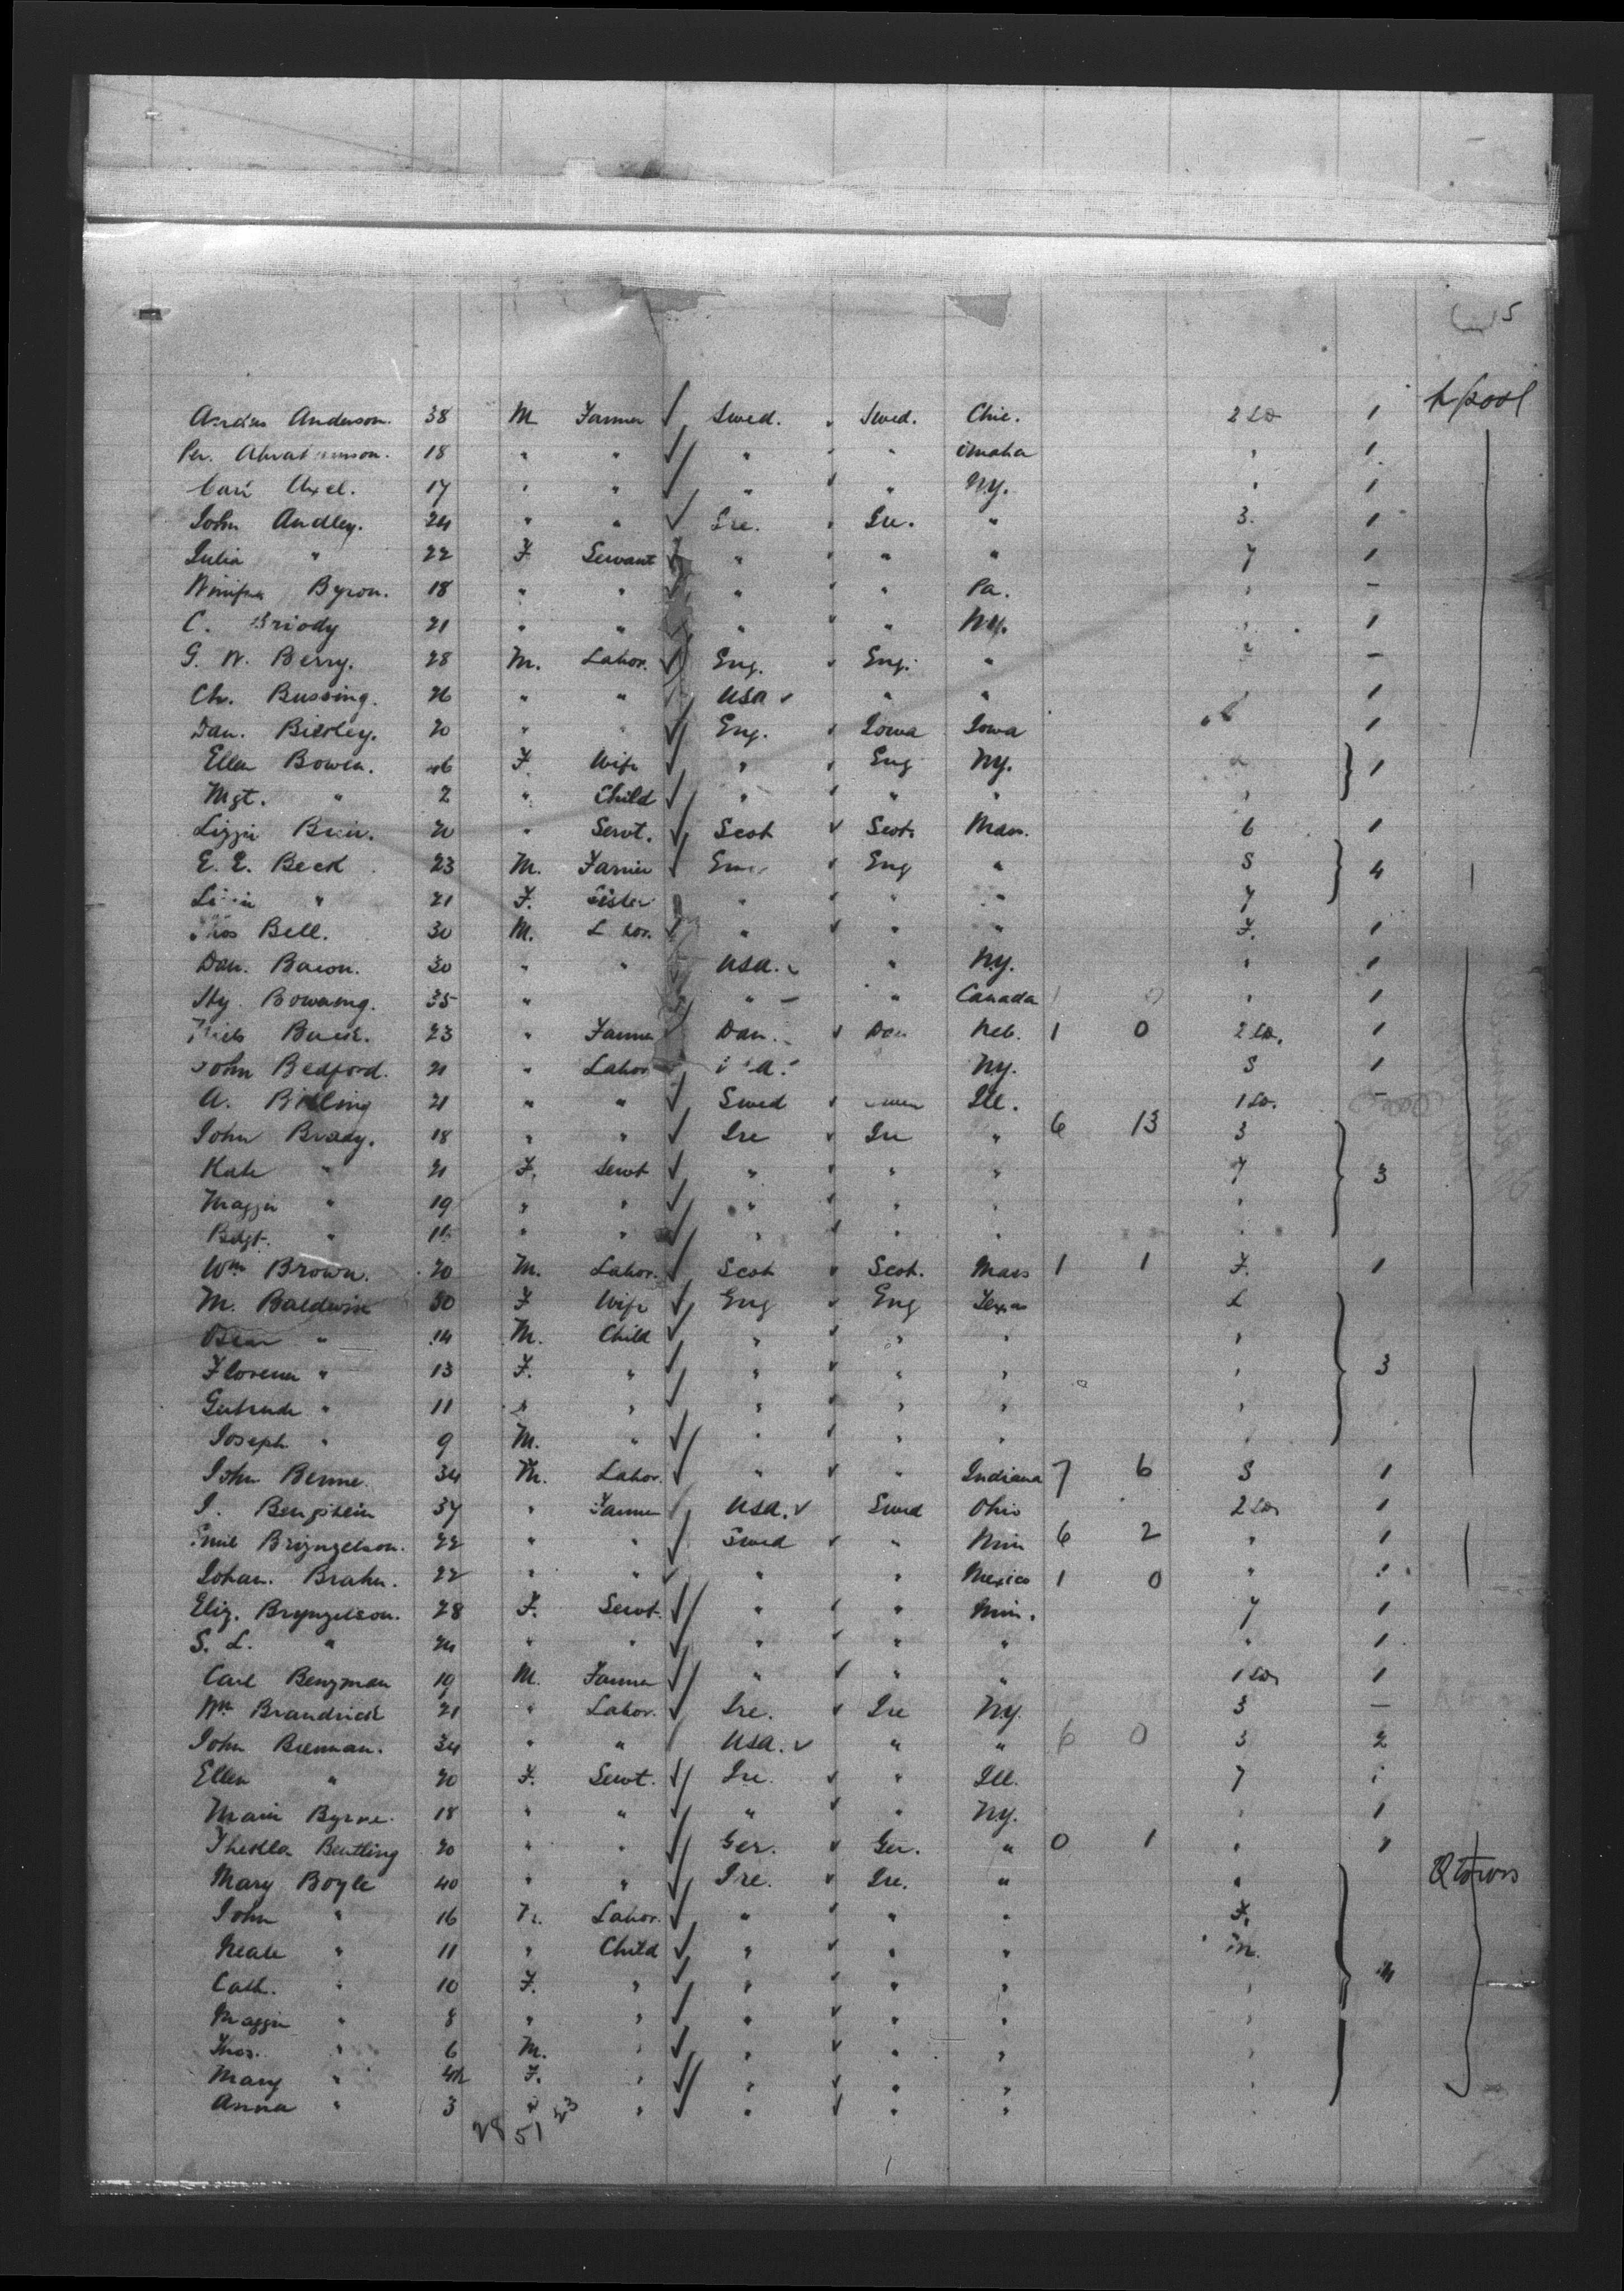 15
L/pool
Anderson. 38 M Farmer ✓ Swed. " Swed. Chic. 2 1
Per. 18 " " ✓ " " " Omaha " 1
Axel. 17 " " ✓ " " " N.Y. " 1
John Audley. 24 " " ✓ Ire. " Ire. " 3. 1
Julia " 22 F Servant ✓ " " " " 7 1
Byron. 18 " " ✓ " " " Pa. " –
C. Briody 21 " " ✓ " " " N.Y. " 1
G. W. Berry. 28 M. Labor. ✓ Eng. " Eng. " –
Ch. Bussing. 26 " " USA ✓ " " " 1
Dan. 20 " " ✓ Eng. " Iowa Iowa 1
Ellen Bowen. F. Wife ✓ " " Eng N.Y. 1
Mgt. " 2 " Child ✓ " " " " "
Lizzie 20 " Servt. ✓ Scot ✓ Scot Mass. 6 1
E. E. Beck 23 M. Farrier ✓ Eng " Eng " S 4
" 21 F. Sister " " " " 7
Thos Bell. 30 M. Labor. ✓ " " " " F. 1
Dan. Bacon. 30 " " USA. ✓ " N.Y. " 1
Hy. 35 " " – " Canada " 1
Niels 23 " Farmer ✓ Dan. ✓ Dan Neb. 1 0 2 1
John Bedford. 21 " Labor N.Y. S 1
A. Billing 21 " " ✓ Swed " Ill. 1 –
John Brady. 18 " " ✓ Ire " Ire " 6 13 3
Kate " 21 F. Servt ✓ " " " " 7 3
Maggie " 19 " " ✓ " " " " "
Bdgt. " " " ✓ " " " " "
Wm Brown. 20 M. Labor. ✓ Scot " Scot. Mass 1 1 F. 1
M. Baldwin 30 F Wife ✓ Eng " Eng Texas L
" 14 M. Child ✓ " " " " "
Florence " 13 F. " ✓ " " " " " 3
Gertrude " 11 " " ✓ " " " " "
Joseph " 9 M. " ✓ " " " " "
John Benne 34 M. Labor. ✓ " ✓ " Indiana 7 6 S 1
J. 37 " Farmer USA. ✓ Swed Ohio 2 1
Emil Bryngelson. 22 " " ✓ Swed " " Min 6 2 " 1
Johan. Brahn. 22 " " ✓ " " Mexico 1 0 " 1
Eliz. Bryngelson. 28 F. Servt. ✓ " " " Min. 7 1
S. L. " 24 " " ✓ " " " " " 1
Carl Bengman 19 M. Farmer ✓ " ✓ " " 1 1
Wm Brandrick 21 " Labor. ✓ Ire. " Ire N.Y. 3 –
John Brennan. 34 " " USA. ✓ " " 6 0 3 2
Ellen " 20 F. Servt. ✓ Ire. " " Ill. 7 1
Byrne. 18 " " ✓ " " " N.Y. " 1
Thekla Bentling 20 " " ✓ Ger. ✓ Ger. " 0 1 " 1
Qtown
Mary Boyle 40 " " ✓ Ire. " Ire. " "
John " 16 M. Labor. ✓ " " " " F.
Neale " 11 " Child ✓ " " " " m.
Cath. " 10 F. " ✓ " " " " "
Maggie " 8 " " ✓ " " " " "
Thos. " 6 M. " ✓ " " " " "
Mary " 4 F. " ✓ " " " " "
Anna " 3 " " ✓ " " " "
28 51 23